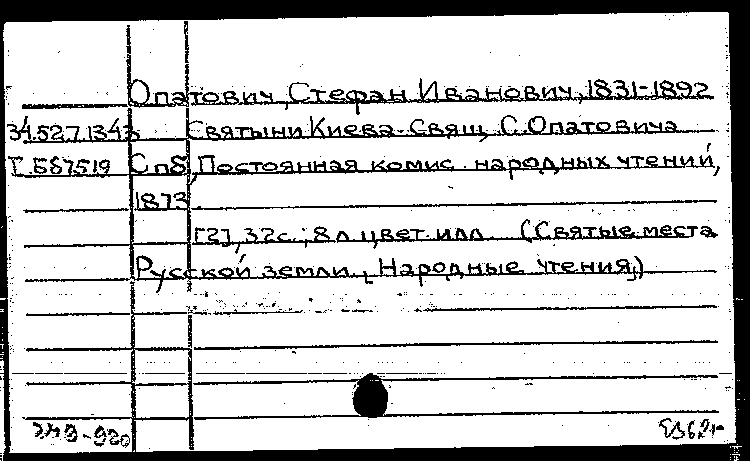 Опатович, Стефан Иванович, 1831-1892
34.527.1343 Святыни Киева. Свящ. С. Опатовича
Спб, Постоянная комис. народных чтений,
1873.
[2], 32 с.; 8 л. цвет. илл. (Святые места
Русской земли, Народные чтения,)